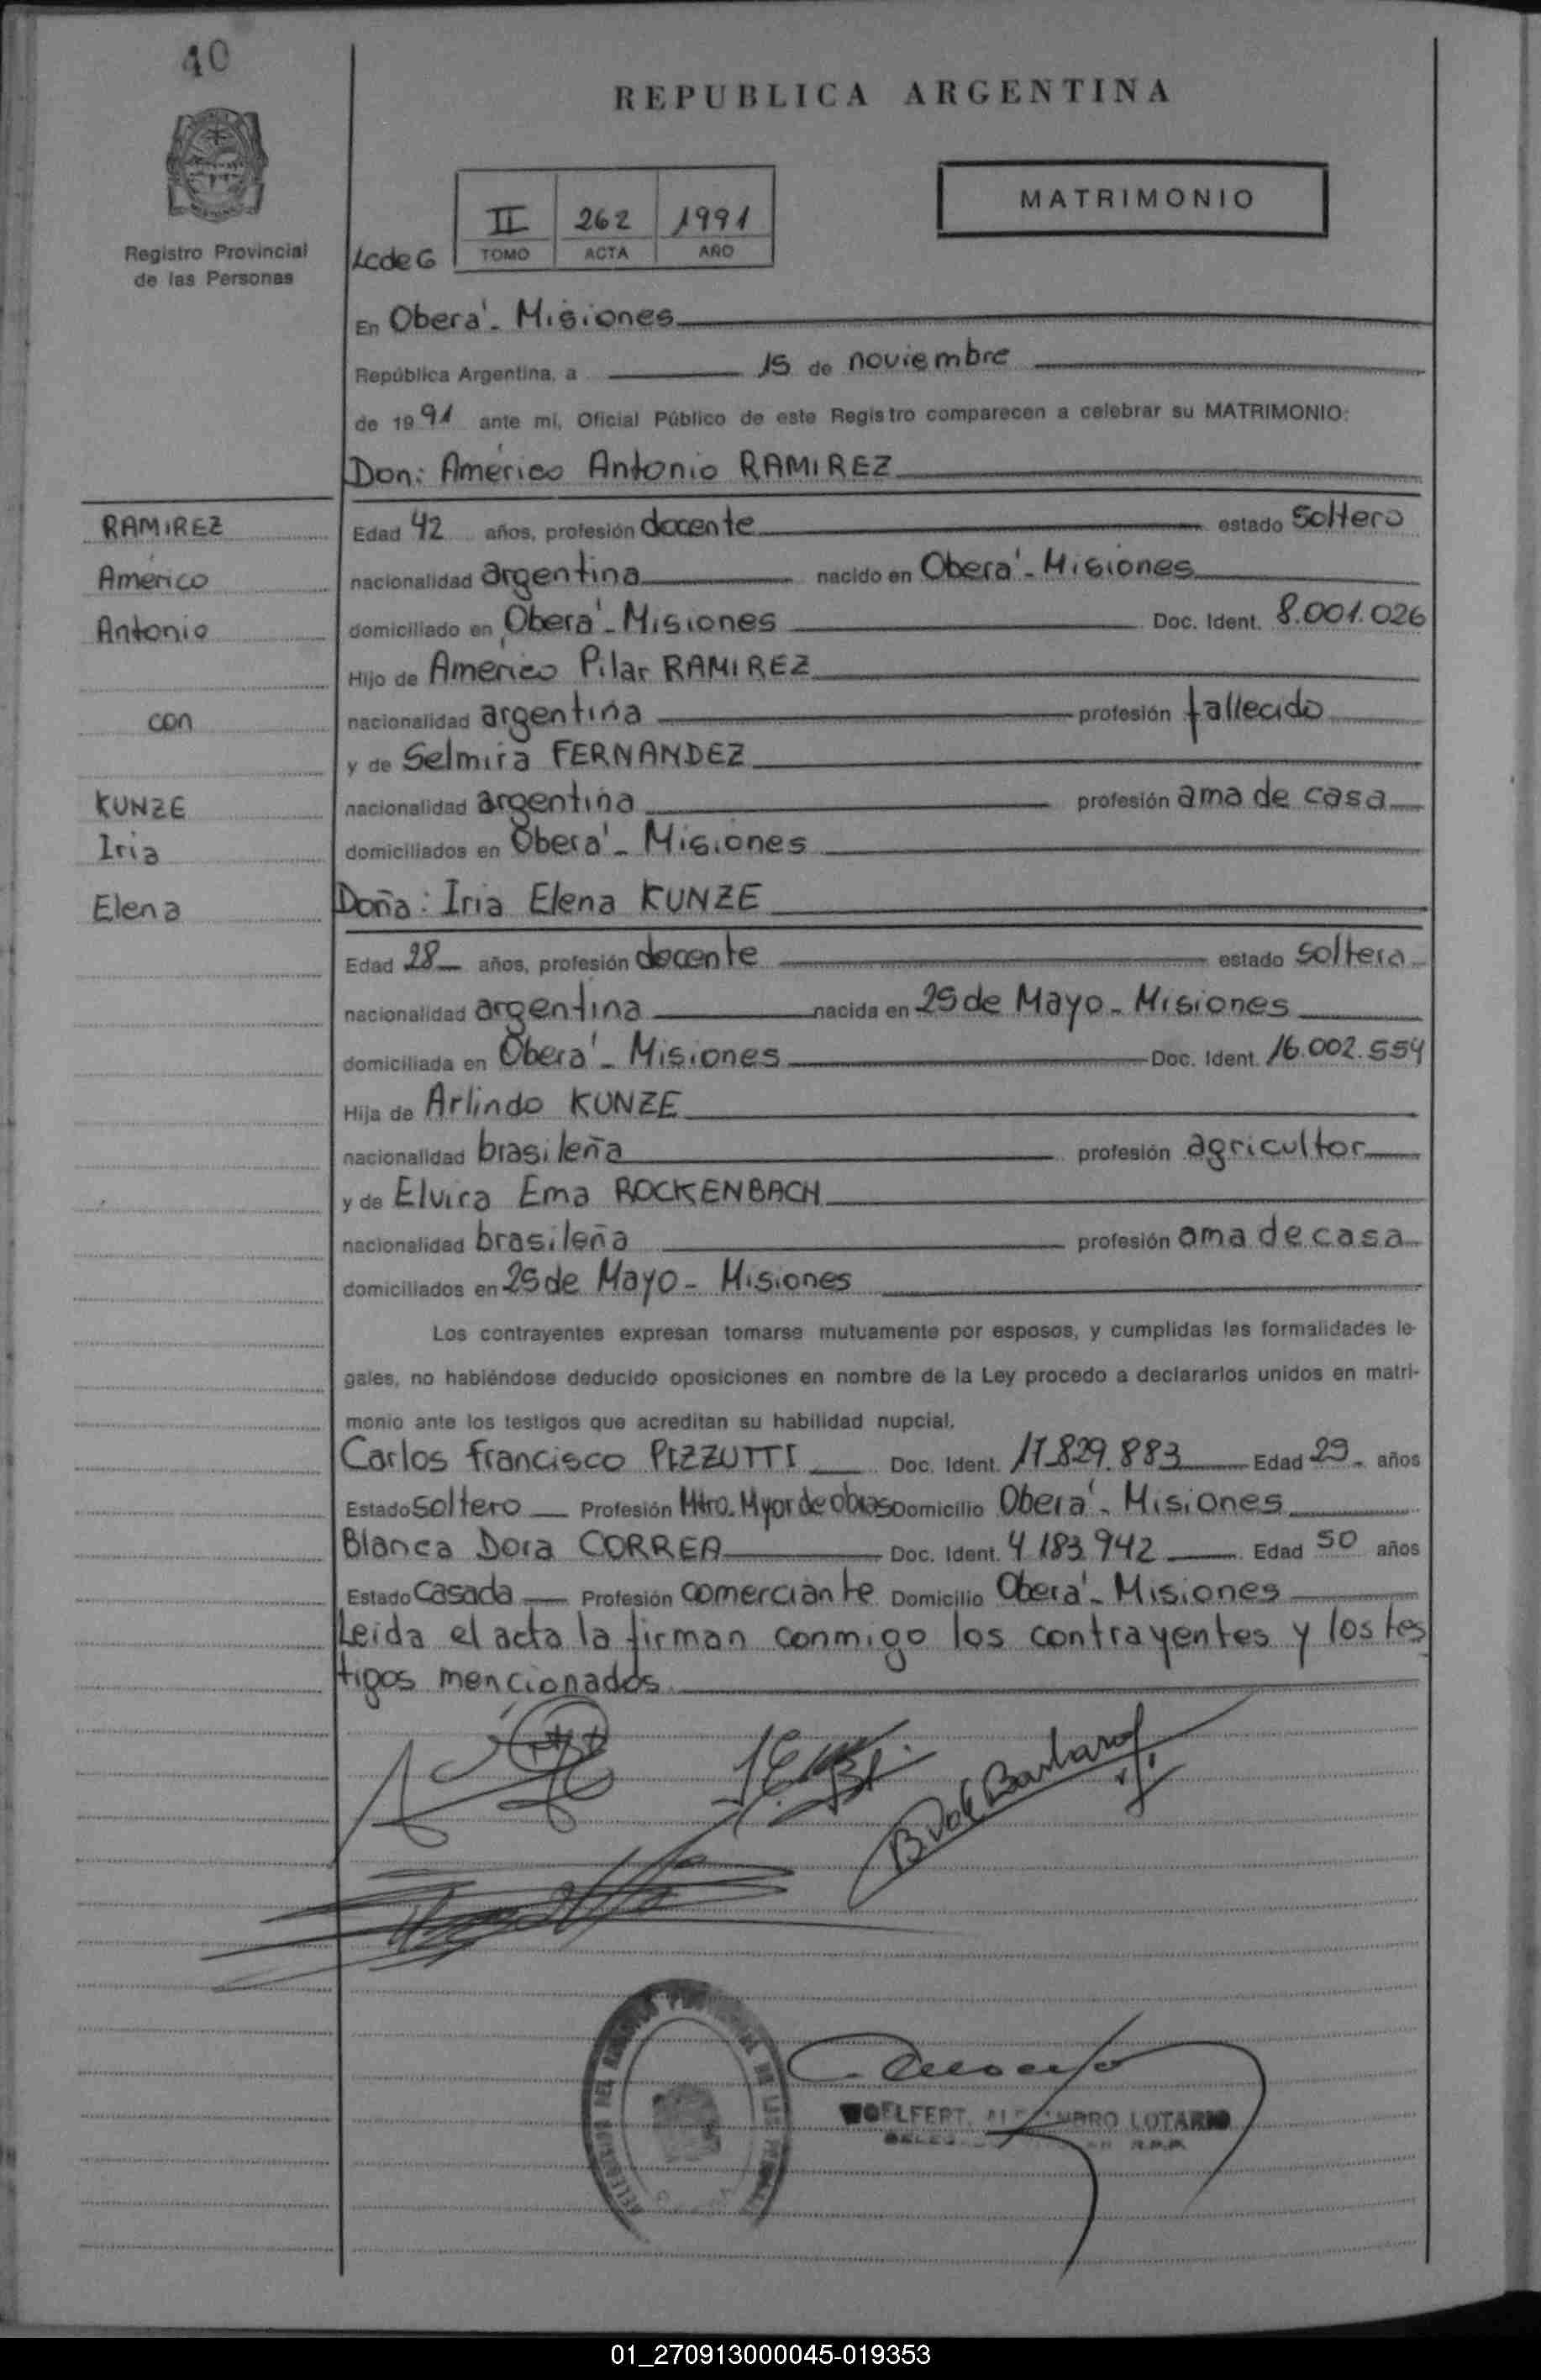 40
REPUBLICA ARGENTINA
MATRIMONIO
II 262 1991
TOMO ACTA AÑO
LcdeG
Registro Provincial
de las Personas
En Oberá - Misiones
República Argentina, a 15 de noviembre
de 1991 ante mi, Oficial Público de este Registro comparecen a celebrar su MATRIMONIO:
Don: Américo Antonio RAMIREZ
RAMIREZ
Américo
Antonio
con
KUNZE
Iria
Elena
Edad 42 años, profesión docente estado Soltero
nacionalidad argentina nacido en Oberá - Misiones
domiciliado en Oberá - Misiones Doc. Ident. 8.001.026
Hijo de Américo Pilar RAMIREZ
nacionalidad argentina profesión fallecido
y de Selmira FERNANDEZ
nacionalidad argentina profesión ama de casa
domiciliados en Oberá - Misiones
Doña: Iria Elena KUNZE
Edad 28 años, profesión docente estado soltera
nacionalidad argentina nacida en 25 de Mayo - Misiones
domiciliada en Oberá - Misiones Doc. Ident. 16.002.554
Hija de Arlindo KUNZE
nacionalidad brasileña profesión agricultor
y de Elvira Ema ROCKENBACH
nacionalidad brasileña profesión ama de casa
domiciliados en 25 de Mayo - Misiones
Los contrayentes expresan tomarse mutuamente por esposos, y cumplidas las formalidades le-
gales, no habiéndose deducido oposiciones en nombre de la Ley procedo a declararlos unidos en matri-
monio ante los testigos que acreditan su habilidad nupcial.
Carlos francisco PIZZUTTI Doc. Ident. 17.829.883 Edad 29 años
Estado soltero Profesión Mtro. Myor de obras Domicilio Oberá - Misiones
Blanca Dora CORREA Doc. Ident. 4 183.942 Edad 50 años
Estado casada Profesión comerciante Domicilio Oberá - Misiones
Leida el acta la firman conmigo los contrayentes y los tes
tigos mencionados
WOELFERT, ALEJANDRO LOTARIO
01_270913000045-019353